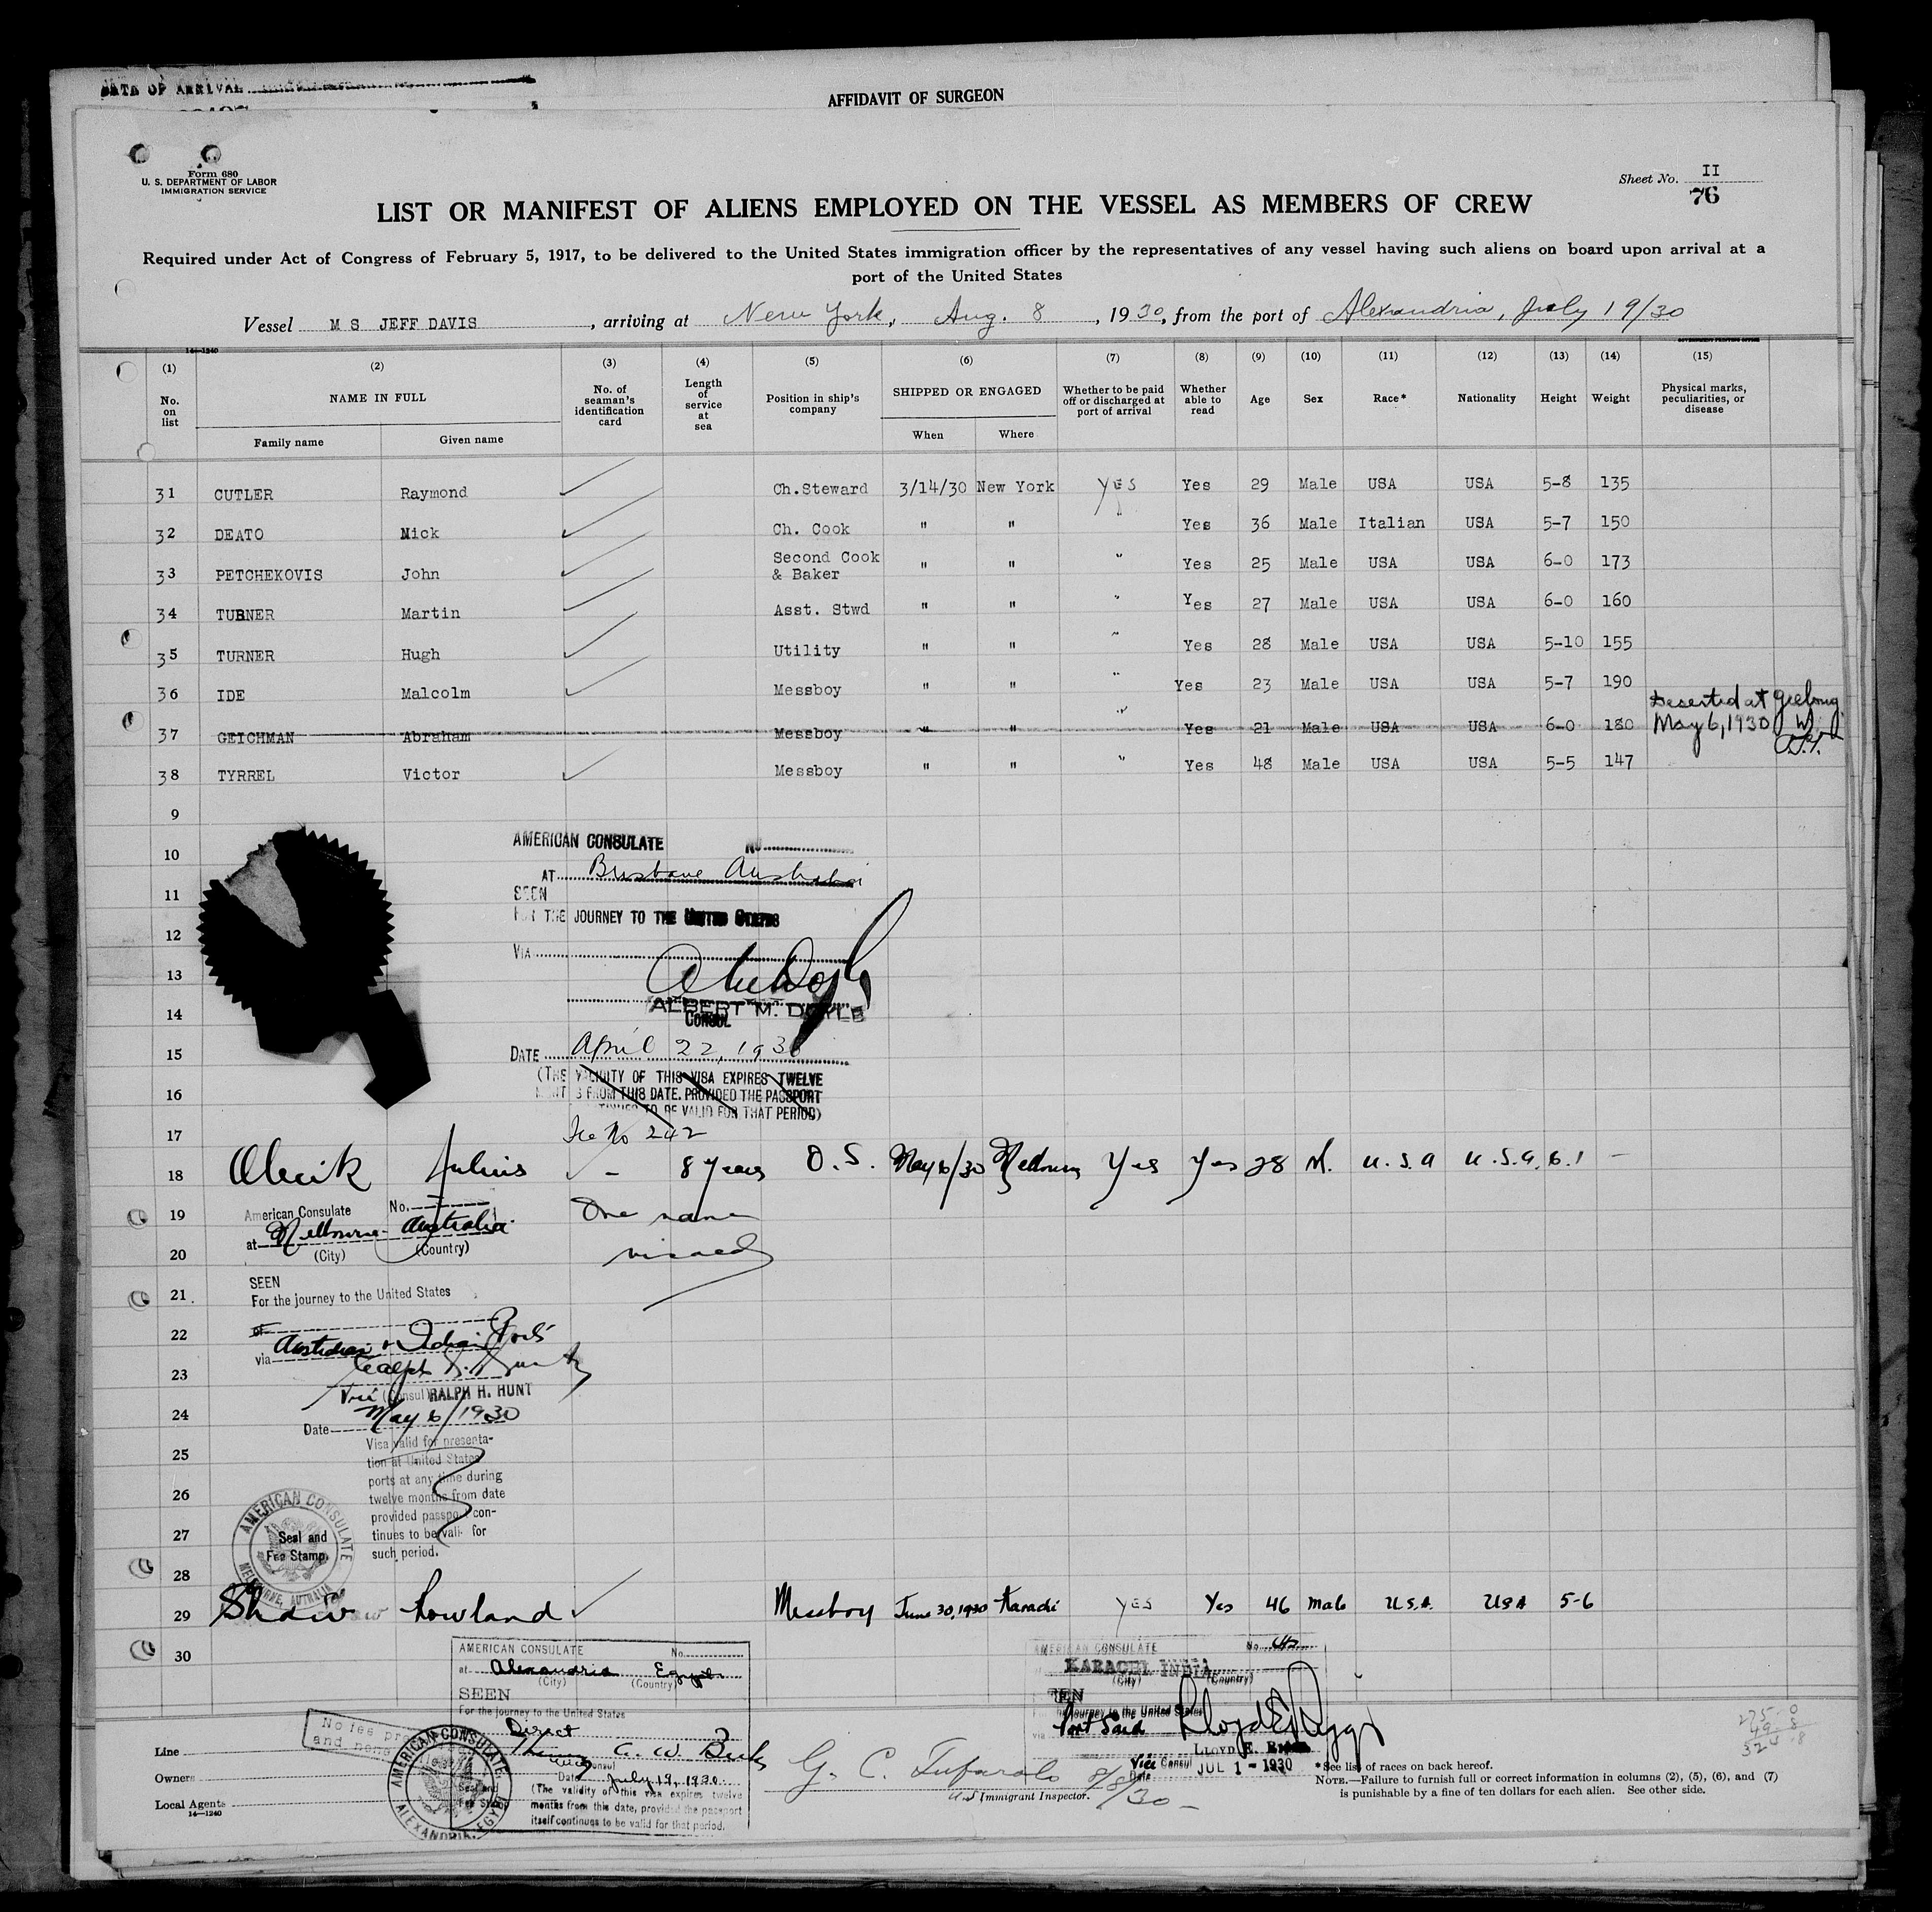 DATE OF ARRIVAL
AFFIDAVIT OF SURGEON
Form 680
U. S. DEPARTMENT OF LABOR
IMMIGRATION SERVICE
Sheet No. II
76
LIST OR MANIFEST OF ALIENS EMPLOYED ON THE VESSEL AS MEMBERS OF CREW
Required under Act of Congress of February 5, 1917, to be delivered to the United States immigration officer by the representatives of any vessel having such aliens on board upon arrival at a
port of the United States
Vessel M S JEFF DAVIS, arriving at New York, Aug. 8, 1930, from the port of Alexandria, July 19/30
14—1240
(1) (2) (3) (4) (5) (6) (7) (8) (9) (10) (11) (12) (13) (14) (15)
No. on list
NAME IN FULL
Family name Given name
No. of seaman's identification card
Length of service at sea
Position in ship's company
SHIPPED OR ENGAGED
When Where
Whether to be paid off or discharged at port of arrival
Whether able to read
Age
Sex
Race*
Nationality
Height
Weight
Physical marks, peculiarities, or disease
31 CUTLER Raymond Ch.Steward 3/14/30 New York YES Yes 29 Male USA USA 5-8 135
32 DEATO Nick Ch. Cook " " " Yes 36 Male Italian USA 5-7 150
33 PETCHEKOVIS John Second Cook & Baker " " " Yes 25 Male USA USA 6-0 173
34 TURNER Martin Asst. Stwd " " " Yes 27 Male USA USA 6-0 160
35 TURNER Hugh Utility " " " Yes 28 Male USA USA 5-10 155
36 IDE Malcolm Messboy " " " Yes 23 Male USA USA 5-7 190
37 GEICHMAN Abraham Messboy " " " Yes 21 Male USA USA 6-0 180 Deserted at Geelong May 6, 1930
38 TYRREL Victor Messboy " " " Yes 48 Male USA USA 5-5 147
9
10
11
12
13
14
15
16
17
AMERICAN CONSULATE No
AT Brisbane Australia
SEEN
FOR THE JOURNEY TO THE UNITED STATES
VIA
ALBERT M. DOYLE
CONSUL
DATE April 22, 1930
(THE VALIDITY OF THIS VISA EXPIRES TWELVE
MONTHS FROM THIS DATE. PROVIDED THE PASSPORT
CONTINUES TO BE VALID FOR THAT PERIOD)
No 242
18 Julius – 8 years O. S. May 6/30 Melbourne Yes Yes 28 M. U.S.A U.S.A. 6.1 –
19
20
21
22
23
24
25
26
27
28
American Consulate No.
at Melbourne Australia
(City) (Country)
One name
visaed
SEEN
For the journey to the United States
of
via Australian & Indian Ports
Ralph H. Hunt
Vice (Consul) RALPH H. HUNT
Date May 6/1930
Visa valid for presenta-
tion at United States
ports at any time during
twelve months from date
provided passport con-
tinues to be valid for
such period.
AMERICAN CONSULATE
Seal and
Fee Stamp.
MELBOURNE, AUTRALIA
29 Shaw Lowland Messboy June 30, 1930 Karachi YES Yes 46 Male U.S.A. USA 5-6
30
AMERICAN CONSULATE No.
at Alexandria Egypt
(City) (Country)
SEEN
For the journey to the United States
Direct
Consul
Date July 19, 1930
(The validity of this visa expires twelve
months from this date, provided the passport
itself continues to be valid for that period.
AMERICAN CONSULATE
Seal and
Fee Stamp
ALEXANDRIA, EGYPT
AMERICAN CONSULATE No 42
KARACHI INDIA
(City) (Country)
SEEN
For the journey to the United States
via Port Said
Vice Consul
Date JUL 1 - 1930
Line
Owners
Local Agents
14—1240
G. C. Tufarolo 8/8/30
US Immigrant Inspector.
*See list of races on back hereof.
NOTE.—Failure to furnish full or correct information in columns (2), (5), (6), and (7)
is punishable by a fine of ten dollars for each alien. See other side.